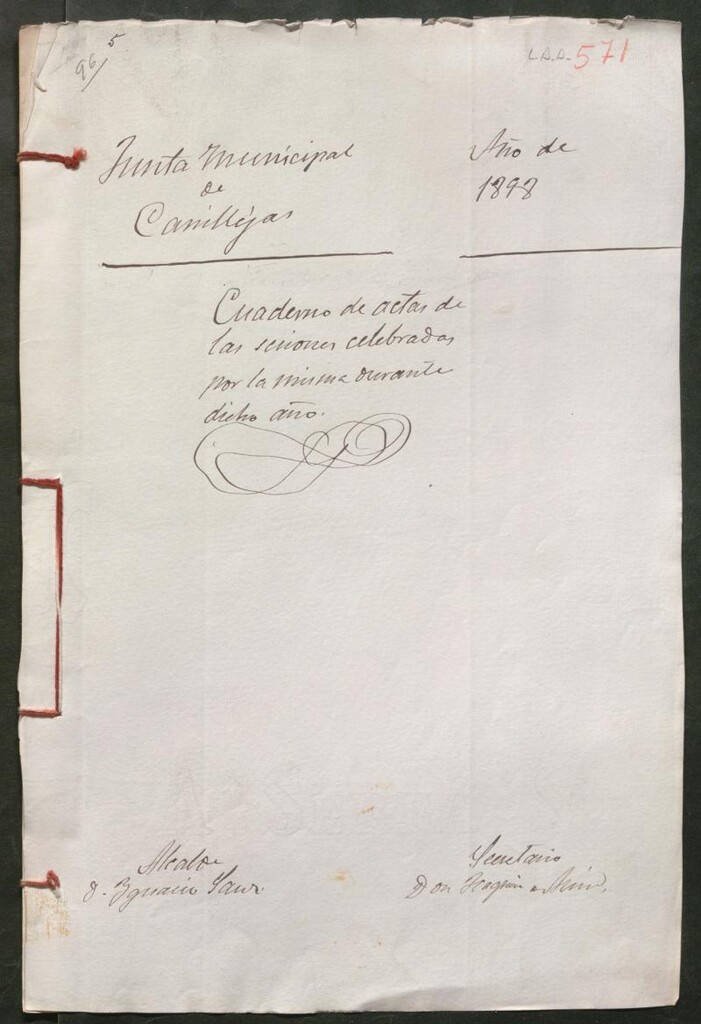 96/5
L.A.A. 571
Junta Municipal
de
Canillejas
Año de
1898
Cuaderno de actas de
las sesiones celebradas
por la misma durante
dicho año.
Alcalde
D. Ygnacio Sanz.
Secretario
Don Joaquin